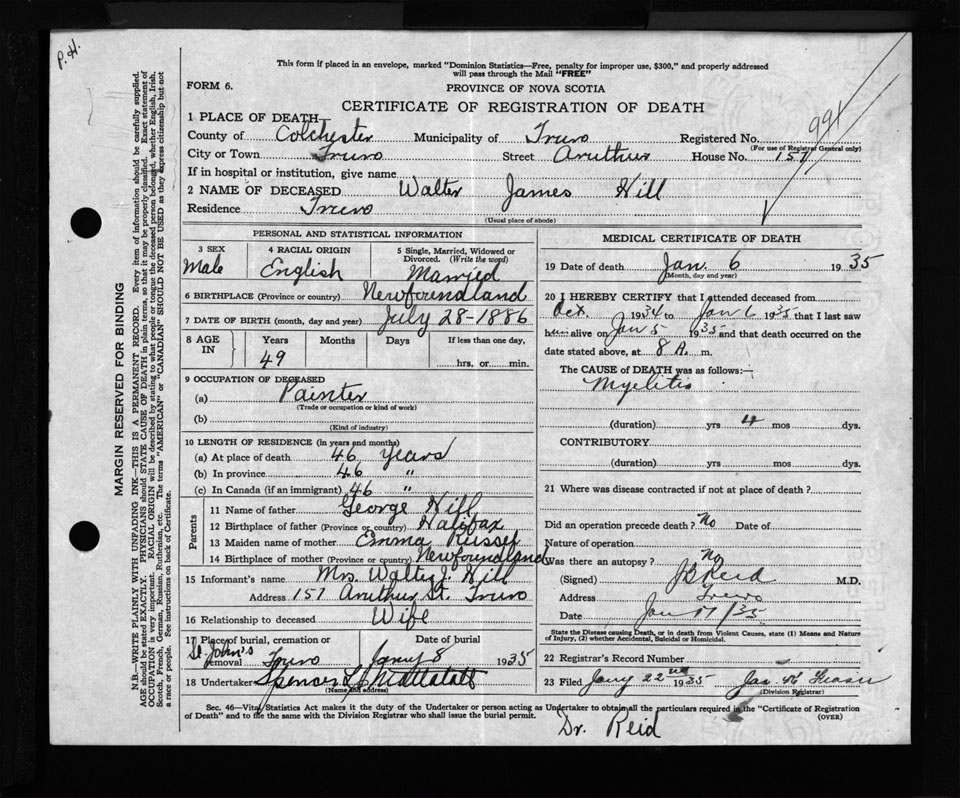 P.H.
This form if placed in an envelope, marked "Dominion Statistics—Free, penalty for improper use, $300," and properly addressed
will pass through the Mail "FREE"
FORM 6.
PROVINCE OF NOVA SCOTIA
CERTIFICATE OF REGISTRATION OF DEATH
991
1 PLACE OF DEATH
County of Colchester Municipality of Truro Registered No.
(For use of Registrar General only)
City or Town Truro Street Aruthur House No. 157
If in hospital or institution, give name
2 NAME OF DECEASED Walter James Hill
Residence Truro
(Usual place of abode)
PERSONAL AND STATISTICAL INFORMATION
3 SEX 4 RACIAL ORIGIN 5 Single, Married, Widowed or
Divorced. (Write the word)
Male English Married
6 BIRTHPLACE (Province or country) Newfoundland
7 DATE OF BIRTH (month, day and year) July 28-1886
8 AGE IN Years Months Days If less than one day,
49 hrs. or min.
9 OCCUPATION OF DECEASED
(a) Painter
(Trade or occupation or kind of work)
(b)
(Kind of industry)
10 LENGTH OF RESIDENCE (in years and months)
(a) At place of death 46 Years
(b) In province 46 "
(c) In Canada (if an immigrant) 46 "
Parents
11 Name of father George Hill
12 Birthplace of father (Province or country) Halifax
13 Maiden name of mother Emma
14 Birthplace of mother (Province or country) Newfoundland
15 Informant's name Mrs. Walter J. Hill
Address 157 Aruthur St. Truro
16 Relationship to deceased Wife
17 Place of burial, cremation or Date of burial
St. John's
removal Truro Jany 8 1935
18 Undertaker Spencer
(Name and address)
MEDICAL CERTIFICATE OF DEATH
19 Date of death Jan. 6 1935
(Month, day and year)
20 I HEREBY CERTIFY that I attended deceased from
Oct. 1934 to Jan 6 1935 that I last saw
h alive on Jan 5 1935 and that death occurred on the
date stated above, at 8 A. m.
The CAUSE of DEATH was as follows:—
Myelitis
(duration) yrs 4 mos dys.
CONTRIBUTORY
(duration) yrs. mos. dys.
21 Where was disease contracted if not at place of death?
Did an operation precede death? No Date of
Nature of operation
Was there an autopsy? No
(Signed) Reid M.D.
Address Truro
Date Jan /35
State the Disease causing Death, or in death from Violent Causes, state (1) Means and Nature
of Injury, (2) whether Accidental, Suicidal or Homicidal.
22 Registrar's Record Number
23 Filed Jany 22nd 1935 Jas. Fraser
(Division Registrar)
Sec. 46—Vital Statistics Act makes it the duty of the Undertaker or person acting as Undertaker to obtain all the particulars required in the "Certificate of Registration
of Death" and to file the same with the Division Registrar who shall issue the burial permit. (OVER)
Dr. Reid
MARGIN RESERVED FOR BINDING
N.B.—WRITE PLAINLY WITH UNFADING INK—THIS IS A PERMANENT RECORD. Every item of information should be carefully supplied.
AGE should be stated EXACTLY. PHYSICIANS should STATE CAUSE OF DEATH in plain terms, so that it may be properly classified. Exact statement of
OCCUPATION is very important. RACIAL ORIGIN will be described by stating to what people or tongue the deceased person belonged, whether English, Irish,
Scotch, French, German, Russian, Ruthenian, etc. The terms "AMERICAN" or "CANADIAN" SHOULD NOT BE USED as they express citizenship but not
a race or people. See instructions on back of Certificate.